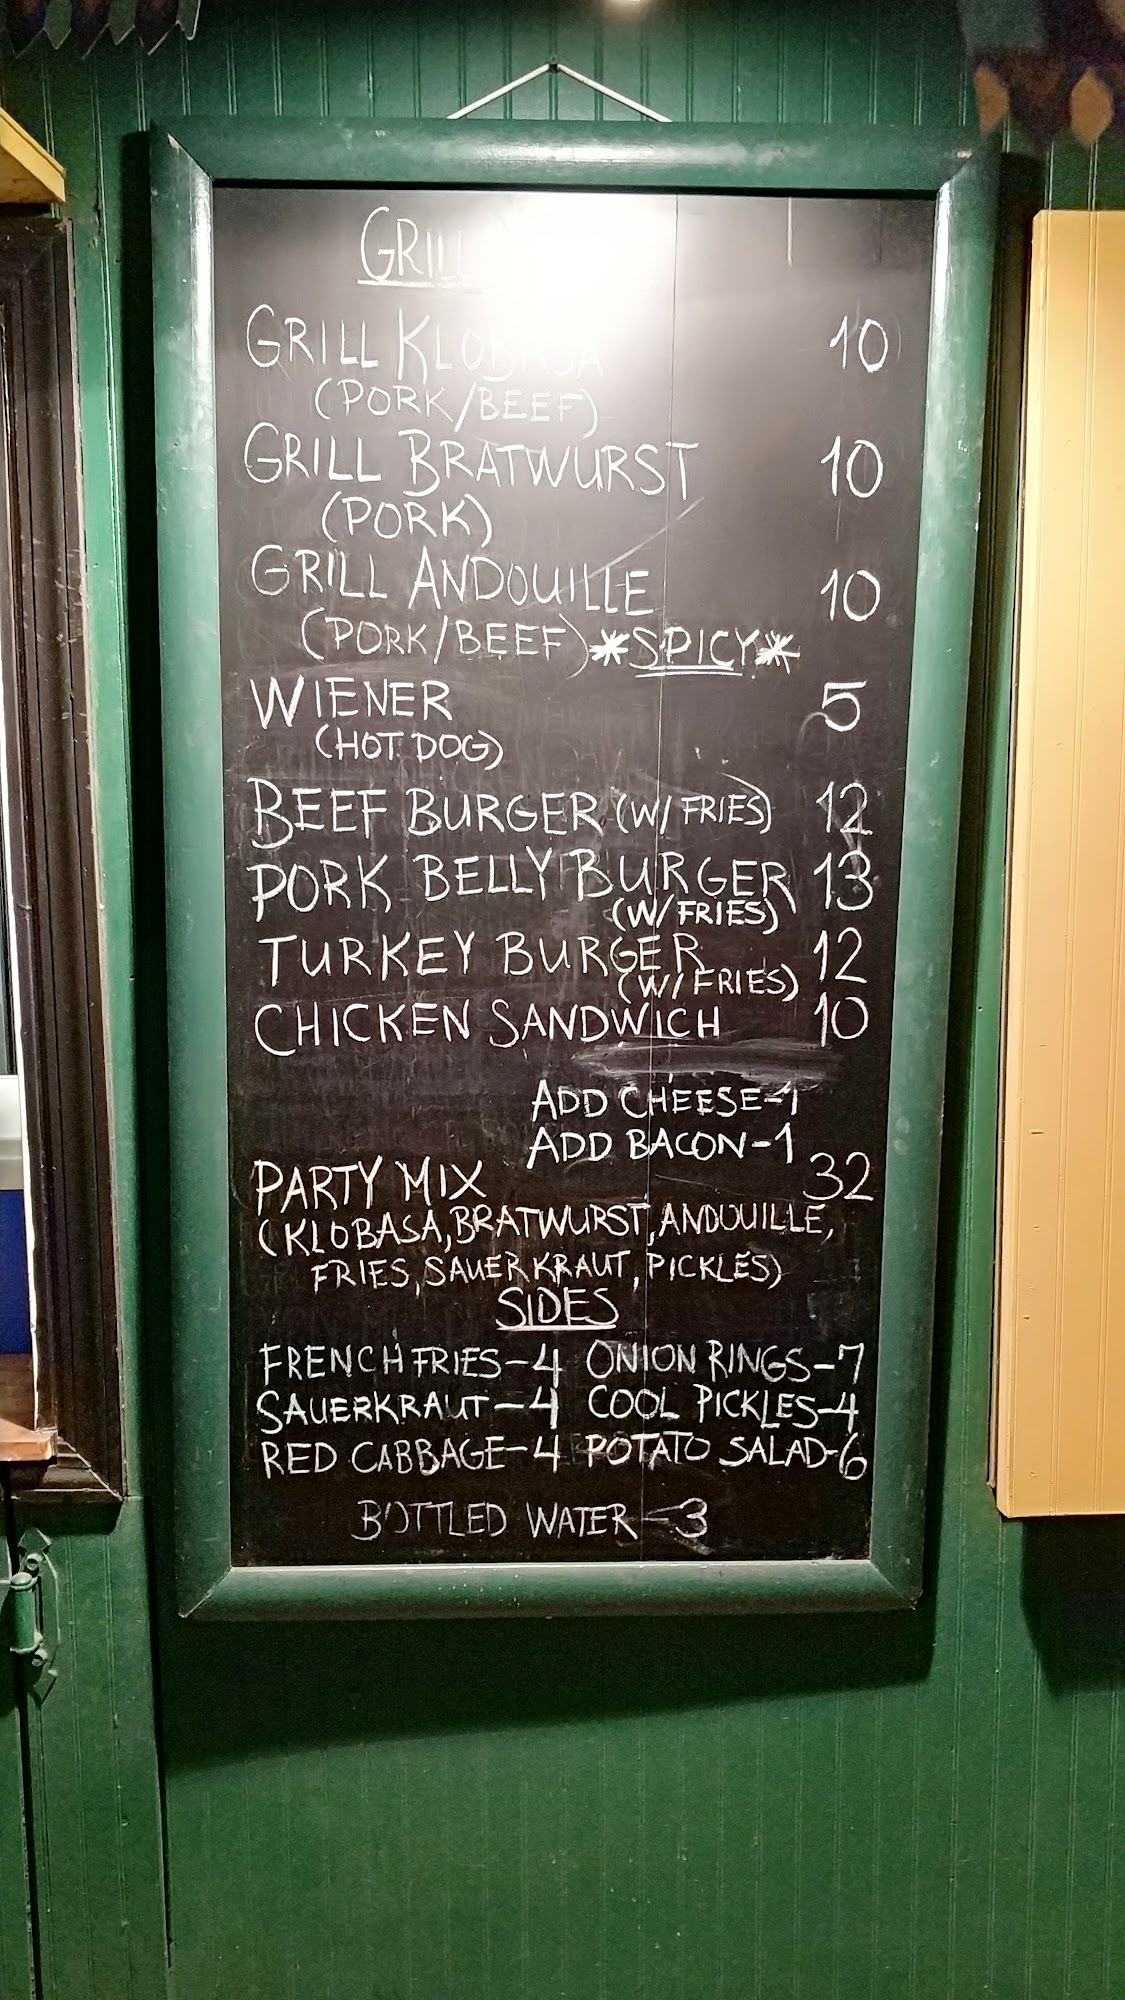 GRILL
GRILL KLOBASA 10
(PORK/BEEF)
GRILL BRATWURST 10
(PORK)
GRILL ANDOUILLE 10
(PORK/BEEF) *SPICY*
WIENER 5
(HOT DOG)
BEEF BURGER (W/ FRIES) 12
PORK BELLY BURGER 13
(W/ FRIES)
TURKEY BURGER 12
(W/ FRIES)
CHICKEN SANDWICH 10
ADD CHEESE-1
ADD BACON-1
PARTY MIX 32
(KLOBASA, BRATWURST, ANDOUILLE,
FRIES, SAUERKRAUT, PICKLES)
SIDES
FRENCH FRIES-4 ONION RINGS-7
SAUERKRAUT-4 COOL PICKLES-4
RED CABBAGE-4 POTATO SALAD-6
BOTTLED WATER-3